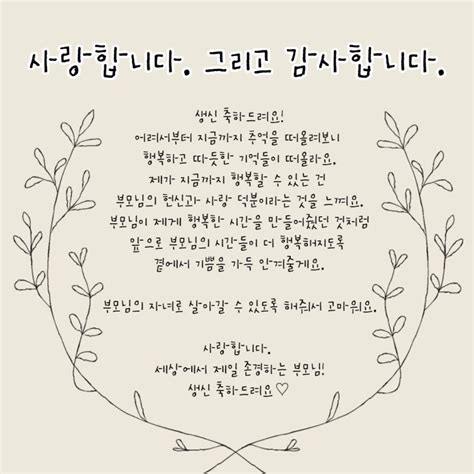 사랑합니다. 그리고 감사합니다.
생신 축하드려요!
어려서부터 지금까지 추억을 떠올려보니
행복하고 따듯한 기억들이 떠올라요.
제가 지금까지 행복할 수 있는 건
부모님의 헌신과 사랑 덕분이라는 것을 느껴요.
부모님이 제게 행복한 시간을 만들어줬던 것처럼
앞으로 부모님의 시간들이 더 행복해지도록
곁에서 기쁨을 가득 안겨줄게요.
부모님의 자녀로 살아갈 수 있도록 해주셔서 고마워요.
사랑합니다.
세상에서 제일 존경하는 부모님!
생신 축하드려요♡